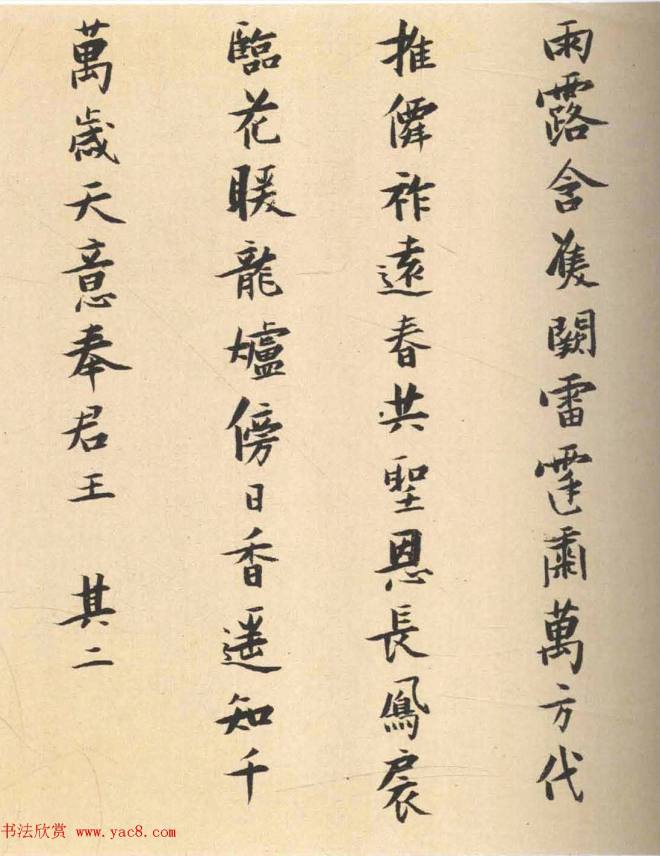 雨露含隻闕雷霆肅萬方代
推僊祚遠春共聖恩長鳳扆
臨花暖龍爐傍日香遥知千
萬歲天意奉君王 其二
书法欣赏 www.yac8.com